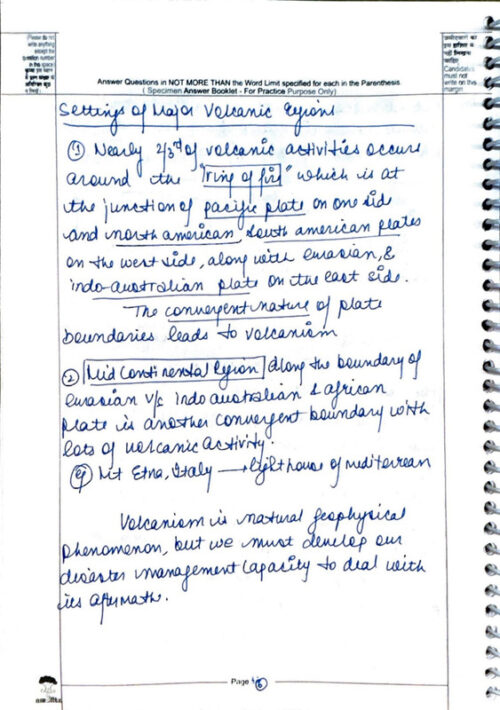 Answer Questions in NOT MORE THAN the Word Limit specified for each in the Parenthesis
( Specimen Answer Booklet - For Practice Purpose Only)
Candidates
must not
write on this
margin
Settings of Major Volcanic Regions
① Nearly 2/3rd of volcanic activities occurs
around the "ring of fire" which is at
the junction of pacific plate on one side
and north american, south american plates
on the west side, along with eurasian, &
indo-australian plate on the east side.
The convergent nature of plate
boundaries leads to volcanism
② Mid Continental Region along the boundary of
eurasian v/c indo australian & african
plate is another convergent boundary with
lots of volcanic activity.
eg Mt Etna, Italy → light house of mediterrean
Volcanism is natural geophysical
phenomenon, but we must develop our
disaster management capacity to deal with
its aftermath.
Page
6